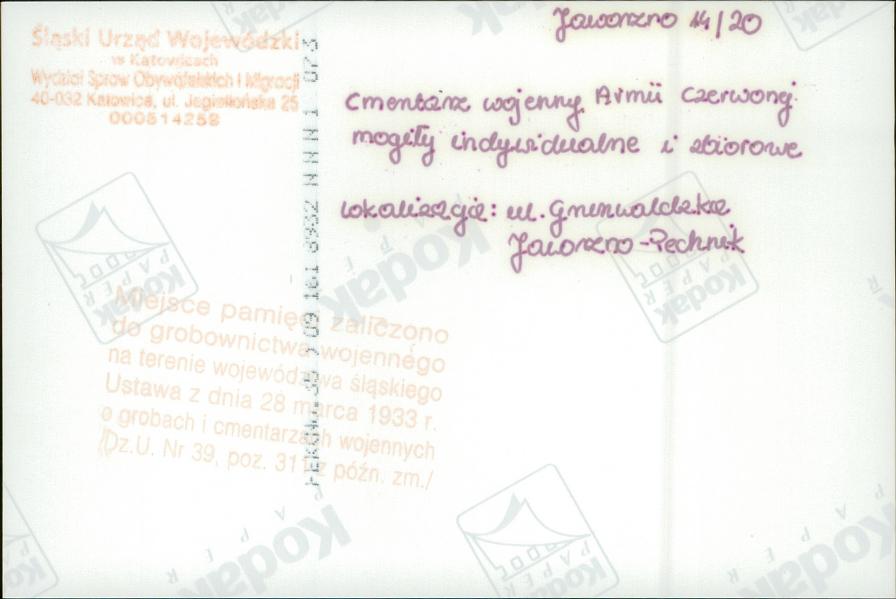 Jaworzno 14/20
Śląski Urząd Wojewódzki
w Katowicach
Wydział Spraw Obywatelskich i Migracji
40-032 Katowice, ul. Jagiellońska 25
000514258
cmentarz wojenny Armii Czerwonej
mogiły indywidualne i zbiorowe
lokalizacja: ul. Grunwaldzka
Jaworzno-Pechnik
Miejsce pamięci zaliczono
do grobownictwa wojennego
na terenie województwa śląskiego
Ustawa z dnia 28 marca 1933 r.
o grobach i cmentarzach wojennych
/Dz.U. Nr 39, poz. 311 z późn. zm./
Kodak
PAPER
Kodak
PAPER
Kodak
PAPER
Kodak
PAPER
Kodak
PAPER